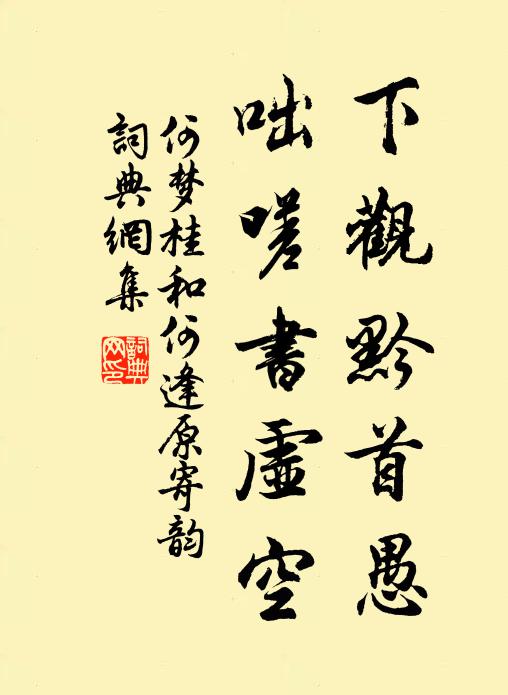 下觀黔首愚
咄嗟書虛空
何梦桂和何逢原寄韵
詞典網集
詞典
网印